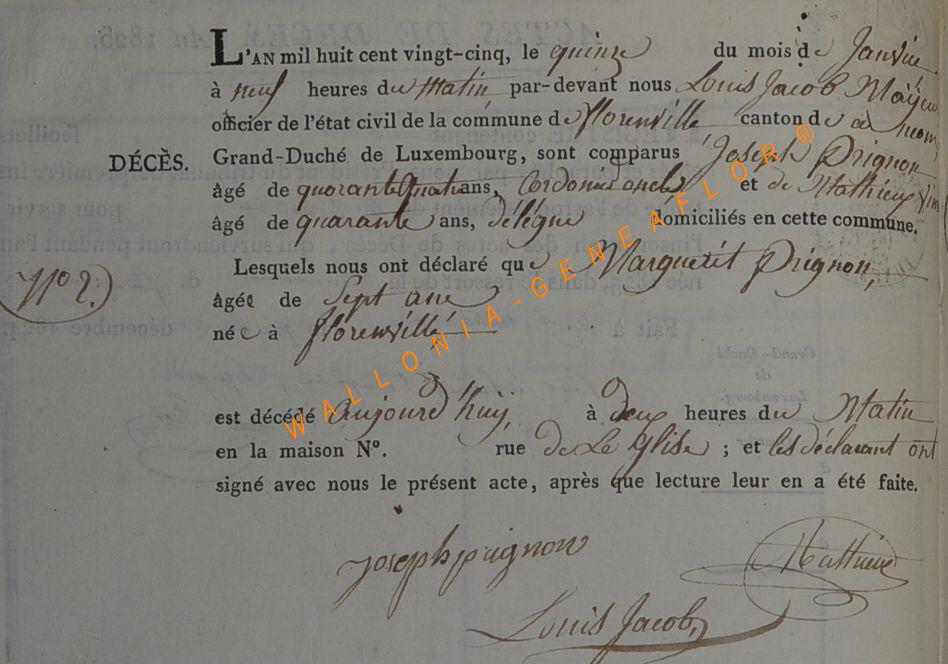 L'AN mil huit cent vingt-cinq, le quinze du mois de Janvier
à neuf heures du Matin par-devant nous Louis Jacob Mayeur
officier de l'état civil de la commune de florenville canton de
DÉCÈS. Grand-Duché de Luxembourg, sont comparus Joseph Prignon
âgé de quarante Quatre ans, Cordonnier et de Mathieu
âgé de quarante ans, délégue domiciliés en cette commune.
Lesquels nous ont déclaré que Marguerit prignon,
N° 2.)
âgée de Sept ans
née à florenville
est décédé aujourd'huy, à deux heures du Matin
en la maison N°. rue de Le glise ; et les déclarant ont
signé avec nous le présent acte, après que lecture leur en a été faite.
Joseph prignon
Mathieu
Louis Jacob,
WALLONIA-GENEAFLOR®